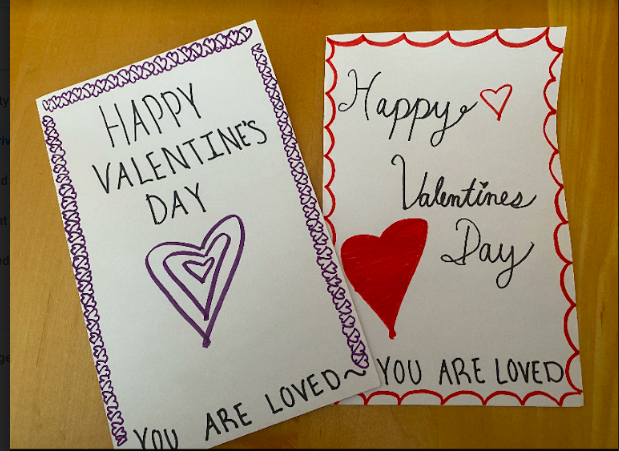 HAPPY
VALENTINE'S
DAY
YOU ARE LOVED~
Happy
Valentines
Day
YOU ARE LOVED